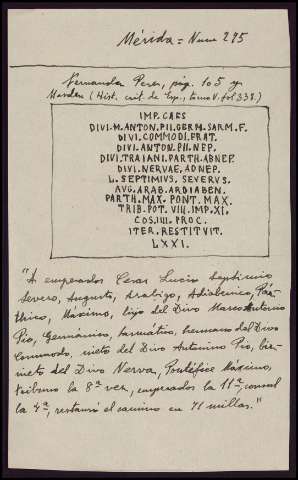 Mérida = Num 295
Fernandez Perez, pág. 105 y
Masdeu (Hist. crit. de Esp., tomo V. fol 338.)
IMP. CAES
DIVI. M. ANTON. PII. GERM. SARM. F.
DIVI. COMMODI. FRAT.
DIVI. ANTON. PII. NEP.
DIVI. TRAIANI. PARTH. ABNEP.
DIVI. NERVAE. ADNEP.
L. SEPTIMIVS. SEVERVS.
AVG. ARAB. ARDIABEN.
PARTH. MAX. PONT. MAX.
TRIB. POT. VIII. IMP. XI.
COS. IIII. PROC.
ITER. RESTITVIT.
LXXI.
"A emperador Cesar Lucio Septimio
Severo, Augusto, Arábigo, Adiabénico, Pár-
thico, Máximo, hijo del Divo Marco Antonio
Pío, Germánico, Sarmático, hermano del Divo
Commodo, nieto del Divo Antonino Pio, biz-
nieto del Divo Nerva, Pontífice Máximo,
tribuno la 8ª vez, emperador la 11ª, consul
la 4ª, restauró el camino en 71 millas."